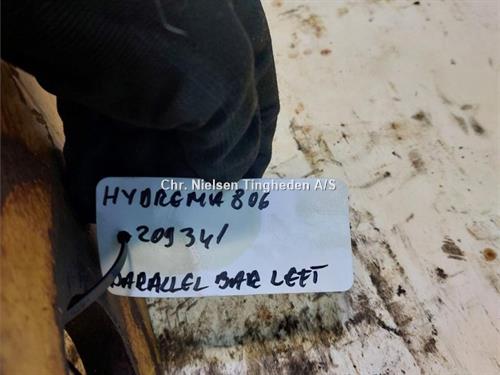 Chr. Nielsen Tingheden A/S
HYDREMA 806
209341
PARALLEL BAR LEFT